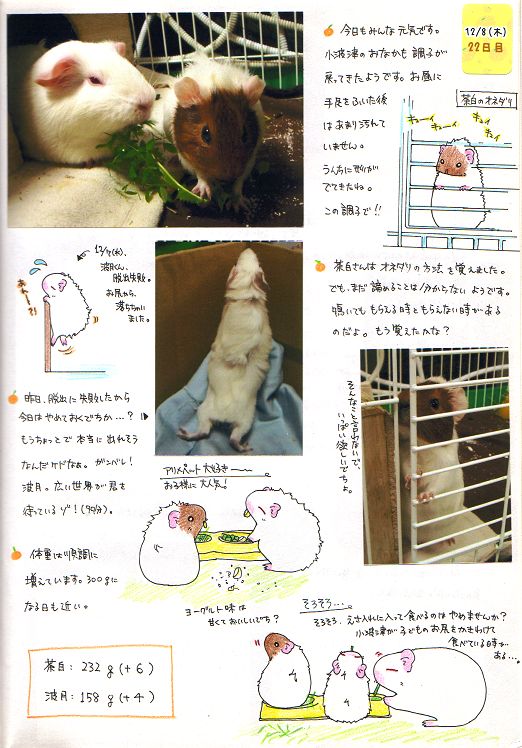 12/8(木)
22日目
今日もみんな元気です。
小波津のおなかも調子が
戻ってきたようです。お昼に
手足をふいた後
はあまり汚れて
いません。
うんちに形が
でてきたね。
この調子で!!
茶白のオネダリ
キューイ
キューイ
キュイ
キュイ
茶白さんはオネダリの方法を覚えました。
でも、まだ諦めることは分からないようです。
鳴いてももらえる時ともらえない時がある
のだよ。もう覚えたかな?
そんなこと言わないで、
いっぱい欲しいでちょ。
12/7(水)、
波月くん、
脱出失敗。
お尻から、
落ちちゃい
ました。
あれー?!
昨日、脱出に失敗したから
今日はやめておくでちか…?
もうちょっとで本当に出れそう
なんだケドなぁ。ガンバレ!
波月。広い世界が君を
待っているゾ!(多分)。
アリメペット大好き~。
お子様に大人気!
ヨーグルト味は
甘くておいしいでち?
体重は順調に
増えています。300gに
なる日も近い。
茶白: 232g(+6)
波月: 158g(+4)
そろそろ…。
そろそろ、えさ入れに入って食べるのはやめませんか?
小波津が子どものお尻をかきわけて
食べている時が
ある…。